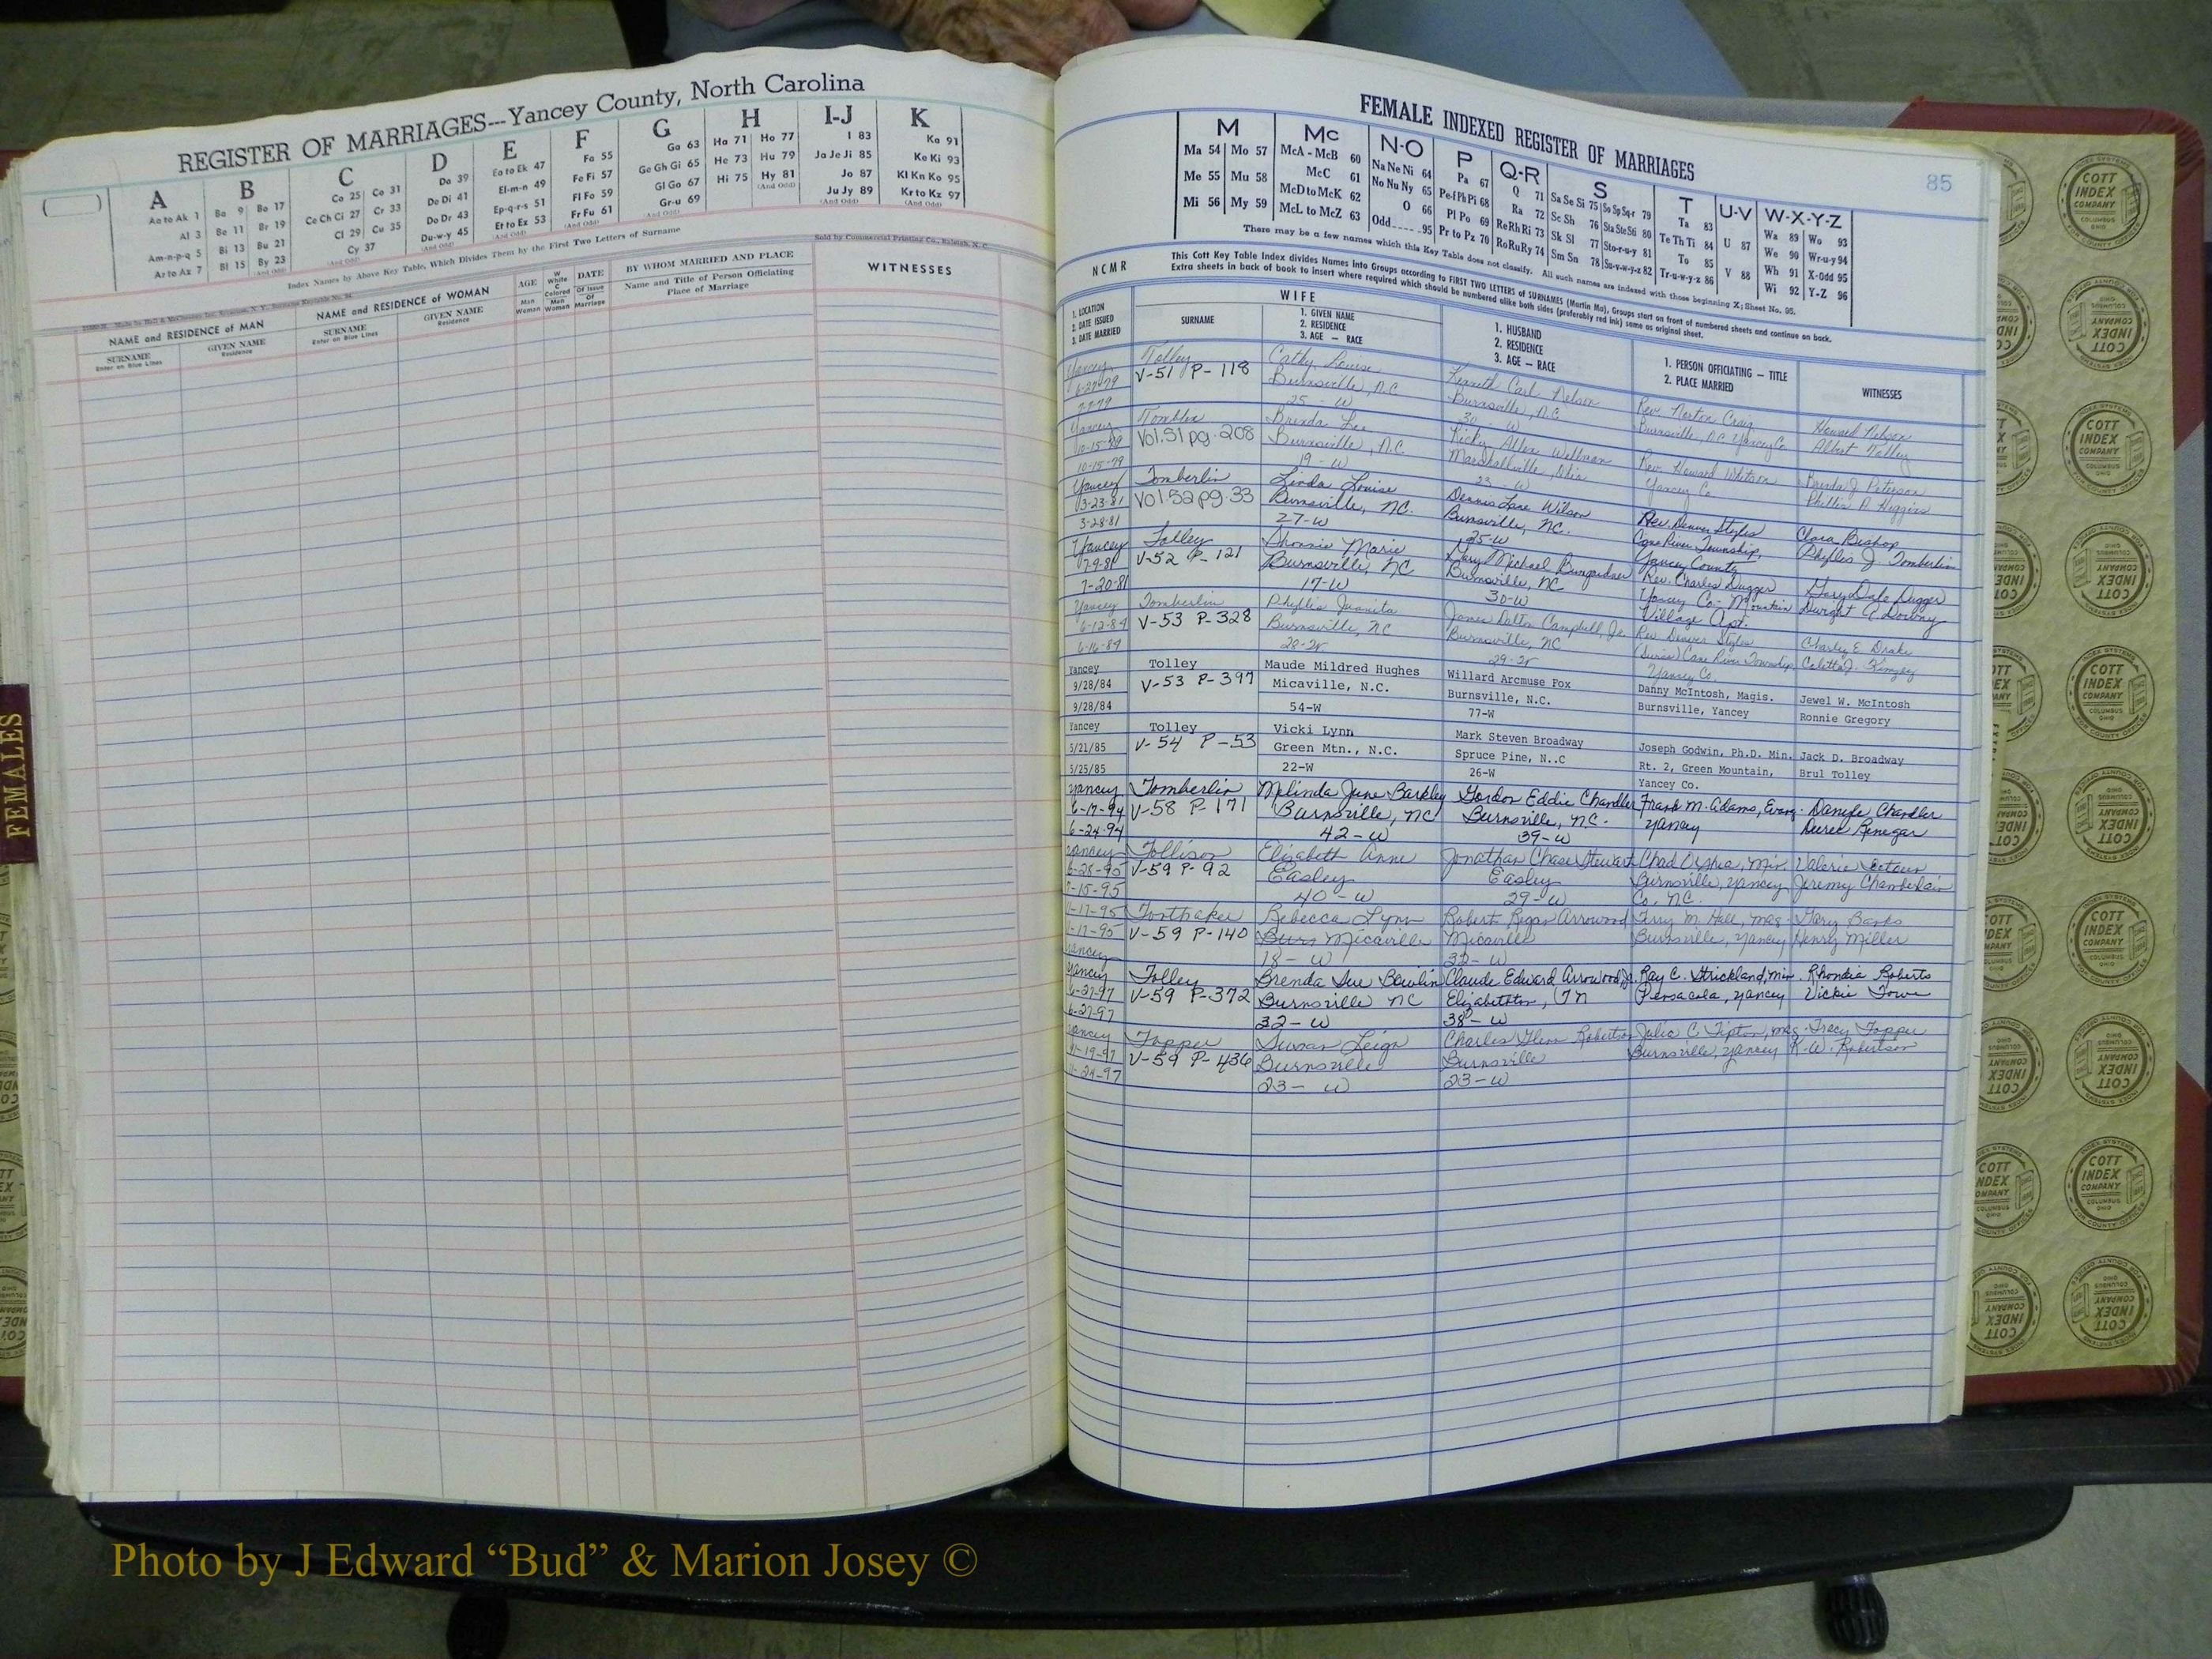 REGISTER OF MARRIAGES---Yancey County, North Carolina
A B C D E F G H I-J K
Aa to Ak 1
Al 3
Am-n-p-q 5
Ar to Az 7
Ba 9 Bo 17
Be 11 Br 19
Bi 13 Bu 21
Bl 15 By 23
(And Odd)
Ca 25 Co 31
Ce Ch Ci 27 Cr 33
Cl 29 Cu 35
Cy 37
Da 39
De Di 41
Do Dr 43
Du-w-y 45
(And Odd)
Ea to Ek 47
El-m-n 49
Ep-q-r-s 51
Et to Ex 53
(And Odd)
Fa 55
Fe Fi 57
Fl Fo 59
Fr Fu 61
(And Odd)
Ga 63
Ge Gh Gi 65
Gl Go 67
Gr-u 69
(And Odd)
Ha 71 Ho 77
He 73 Hu 79
Hi 75 Hy 81
(And Odd)
I 83
Ja Je Ji 85
Jo 87
Ju Jy 89
(And Odd)
Ka 91
Ke Ki 93
Kl Kn Ko 95
Kr to Kz 97
(And Odd)
Index Names by Above Key Table, Which Divides Them by the First Two Letters of Surname
Sold by Commercial Printing Co., Raleigh, N. C.
NAME and RESIDENCE of MAN
SURNAME
Enter on Blue Lines
GIVEN NAME
Residence
NAME and RESIDENCE of WOMAN
SURNAME
Enter on Blue Lines
GIVEN NAME
Residence
AGE
Man
Woman
W White
C Colored
Man
Woman
DATE
Of Issue
Of Marriage
BY WHOM MARRIED AND PLACE
Name and Title of Person Officiating
Place of Marriage
WITNESSES
FEMALES
FEMALE INDEXED REGISTER OF MARRIAGES
85
M Mc N-O P Q-R S T U-V W-X-Y-Z
Ma 54 Mo 57
Me 55 Mu 58
Mi 56 My 59
McA - McB 60
McC 61
McD to McK 62
McL to McZ 63
Na Ne Ni 64
No Nu Ny 65
O 66
Odd-----95
Pa 67
Pe-f Ph Pi 68
Pl Po 69
Pr to Pz 70
Q 71
Ra 72
Re Rh Ri 73
Ro Ru Ry 74
Sa Se Si 75 So Sp Sq-r 79
Sc Sh 76 Sta Ste Sti 80
Sk Sl 77 Sto-r-u-y 81
Sm Sn 78 Su-v-w-y-z 82
Ta 83
Te Th Ti 84
To 85
Tr-u-w-y-z 86
U 87
V 88
Wa 89 Wo 93
We 90 Wr-u-y 94
Wh 91 X-Odd 95
Wi 92 Y-Z 96
There may be a few names which this Key Table does not classify. All such names are indexed with those beginning X; Sheet No. 95.
NCMR
This Cott Key Table Index divides Names into Groups according to FIRST TWO LETTERS of SURNAMES (Martin Ma). Groups start on front of numbered sheets and continue on back.
Extra sheets in back of book to insert where required which should be numbered alike both sides (preferably red ink) same as original sheet.
1. LOCATION
2. DATE ISSUED
3. DATE MARRIED
WIFE
SURNAME
1. GIVEN NAME
2. RESIDENCE
3. AGE — RACE
1. HUSBAND
2. RESIDENCE
3. AGE — RACE
1. PERSON OFFICIATING — TITLE
2. PLACE MARRIED
WITNESSES
Yancey Tolley Cathy Louise Kenneth Carl Nelson Rev. Norton Craig Howard Nelson
6-27-79 V-51 P-118 Burnsville, N.C. Burnsville, N.C. Burnsville, N.C. Yancey Co. Albert Tolley
7-7-79 25 - W 30 - W
Yancey Brenda Lee Ricky Allen Wellman Rev. Howard Whitson Brenda J. Peterson
10-15-79 Vol. 51 pg. 208 Burnsville, N.C. Marshallville, Ohio Yancey Co. Phillis A. Higgins
10-15-79 19 - W 23 - W
Yancey Tomberlin Linda Louise Dennis Lane Wilson Rev. Denver Styles Clara Bishop
3-23-81 Vol. 52 pg. 33 Burnsville, NC. Burnsville, NC. Cane River Township, Phyllis J. Tomberlin
3-28-81 27-W 25-W Yancey County
Yancey Tolley Marie Gary Michael Bumgardner Rev. Charles Dugger Gary Dale Dugger
7-9-81 V-52 P-121 Burnsville, NC Burnsville, NC Yancey Co.- Mountain Dwight A. Downy
7-20-81 17-W 30-W Village Apt.
Yancey Tomberlin Phyllis Juanita James Dalton Campbell, Jr. Rev. Denver Styles Charles E. Drake
6-12-84 V-53 P-328 Burnsville, NC Burnsville, NC Cane River Township,
6-16-84 28-W 29-W Yancey Co.
Yancey Tolley Maude Mildred Hughes Willard Arcmuse Fox Danny McIntosh, Magis. Jewel W. McIntosh
9/28/84 V-53 P-397 Micaville, N.C. Burnsville, N.C. Burnsville, Yancey Ronnie Gregory
9/28/84 54-W 77-W
Yancey Tolley Vicki Lynn Mark Steven Broadway Joseph Godwin, Ph.D. Min. Jack D. Broadway
5/21/85 V-54 P-53 Green Mtn., N.C. Spruce Pine, N..C Rt. 2, Green Mountain, Brul Tolley
5/25/85 22-W 26-W Yancey Co.
Yancey Tomberlin Melinda June Barkley Gordon Eddie Chandler Frank M. Adams, Evang. Danyle Chandler
6-17-94 V-58 P-171 Burnsville, NC Burnsville, N.C. Yancey Renegar
6-24-94 42-W 39-W
Yancey Tollison Elizabeth Anne Jonathan Chase Stewart Chad Min. Valerie
6-28-95 V-59 P-92 Easley Easley Burnsville, Yancey Jeremy Chamberlain
7-15-95 40-W 29-W Co., N.C.
11-17-95 Toothaker Rebecca Lynn Robert Regan Arrowood Terry M. Hall, Mag. Gary Banks
11-17-95 V-59 P-140 Burs Micaville Micaville Burnsville, Yancey Henry Miller
Yancey 18- W 32- W
Yancey Tolley Brenda Sue Bowlin Claude Edward Arrowood, Jr. Ray C. Strickland, Min. Rhondia Roberts
6-27-97 V-59 P-372 Burnsville NC Elizabethton, TN Pensacola, Yancey Vickie Towe
6-27-97 32- W 38- W
Yancey Topper Susan Leigh Charles Glenn Robertson Julia C. Tipton, Mag. Tracy Topper
11-19-97 V-59 P-436 Burnsville Burnsville Burnsville, Yancey K.W. Robertson
11-24-97 23- W 23-W
COTT
INDEX
COMPANY
COLUMBUS
OHIO
INDEX SYSTEMS
FOR COUNTY OFFICES
Photo by J Edward “Bud” & Marion Josey ©